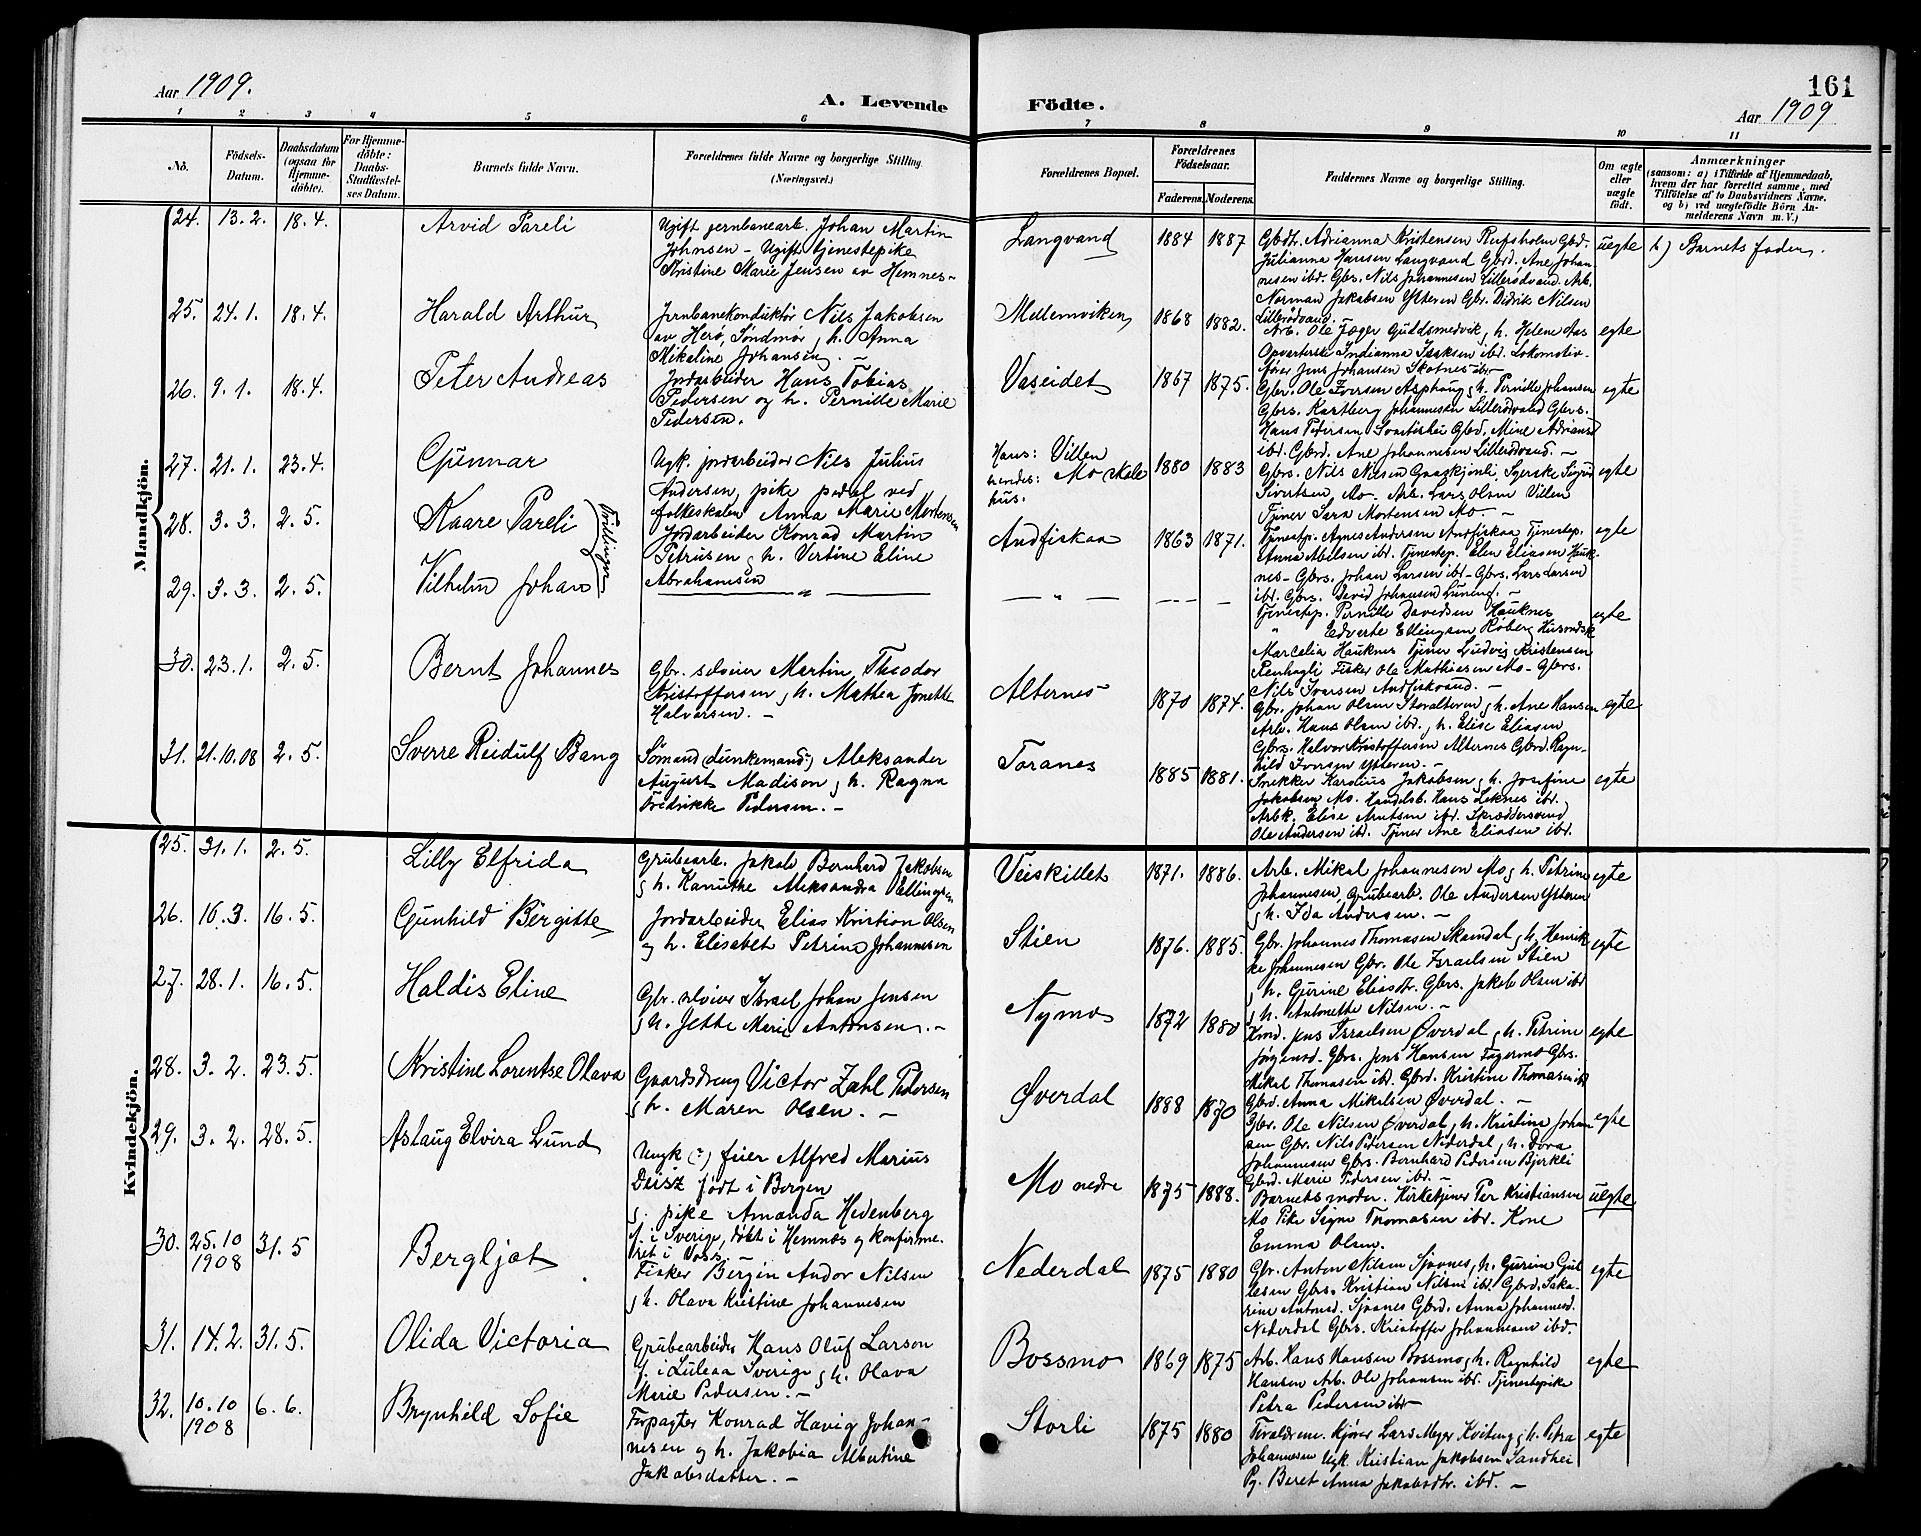 Aar 1909.
A. Levende
Födte.
161
Aar 1909
1 2 3 4 5 6 7 8 9 10 11
No.
Födsels-
Datum.
Daabsdatum
(ogsaa for
Hjemme-
döbte).
For Hjemme-
döbte:
Daabs-
Stadfæstel-
ses Datum.
Barnets fulde Navn.
Forældrenes fulde Navne og borgerlige Stilling
(Næringsvei.)
Forældrenes Bopæl.
Forældrenes
Födselsaar.
Faderens. Moderens.
Faddernes Navne og borgerlige Stilling.
Om ægte
eller
uægte
födt.
Anmærkninger
(saasom: a) i Tilfælde af Hjemmedaab,
hvem der har forrettet samme, med
Tilföielse af to Daabsvidners Navne,
og b) ved uægtefödte Börn An-
melderens Navn m. V.)
Mandkjön.
24. 13.2. 18.4. Arvid Pareli
Ugift jernbanearb. Johan Martin
Johnsen - Ugift tjenestepike
Kristine Marie Jensen av Hemnes-
Langvand 1884 1887
Gbdtr. Adrianna Kristensen Reifsholm Gbd.
Julianna Hansen Langvand Gbrd. Ane Johan
nesen ibd. Gbr. Nils Johannesen Lillerödvand. Arb.
Norman Jakobsen Ytteren Gbr. Didrik Nilsen
Lillerödvand.
uegte b) Barnets fader.
25. 24.1. 18.4. Harald Arthur
Jernbanekonduktör Nils Jakobsen
av Herö, Söndmör, h. Anna
Mikaline Johansen. -
Mellemviken 1868 1882.
Arb. Ole Jæger Guldsmedvik, h. Helene Aas
Opvarterske Indianna Isaksen ibd. Lokomotiv-
förer Jens Johansen Skotnes ibr-
egte
26. 9.1. 18.4. Peter Andreas
Jordarbeider Hans Tobias
Pedersen og h. Pernille Marie
Pedersen.
Vaseidet 1867 1875.
Gbr. Ole Iversen Asphaug, h. Pernille Johansen
Gbrs. Kartberg Johannesen Lillerödvand Gbrs.
Hans Pedersen Gbd. Mine
ibd. Gbrd. Ane Johannesen Lillerödvand. -
egte
27. 21.1. 23.4. Gunnar
Ugk. jordarbeider Nils Julius
Andersen, pike ved
folkeskolen Anna Marie Mortensen
Hans: Villen
hendes: Mo skole
hus.
1880 1883
Gbrs. Nils Nilsen Syerske Sigrid
Sivertsen, Mo- Arb. Lars Olsen Villen
Tjener Sara Mortensen Mo- -
egte
28. 3.3. 2.5. Kaare Pareli
Tvillinger
Jordarbeider Konrad Martin
Petrusen, h. Vertine Eline
Abrahamsen
Andfiskaa 1863 1871.
Tjenestp. Agnes Andersen Andfiskaa Tjenestep.
Anna Abelsen ibd. Tjenestep. Elen Eliasen Hauk-
nes- Gbrs. Johan Larsen ibd- Gbrs. Lars Larsen
ibd. Gbrs. David Johansen -
egte
29. 3.3. 2.5. Vilhelm Johan
— " —
— " — — — —
Tjenestep. Pernille Davidsen Hauknes
" Edverte Ellingsen Röberg
Marcelia Hauknes Tjener Ludvig Kristensen
Fisker Ole Mathiasen Mo- Gbrs.
Nils Ivarsen Andfiskvand. -
egte
30. 23.1. 2.5. Bernt Johannes
Gbr. selveier Martin Theodor
Kristoffersen, h. Mathea Jonette
Halvorsen. -
Alternes 1870 1874.
Gbr. Johan Olsen Storalteren, h. Ane Hansen
Arb. Hans Olsen ibd., h. Elise Eliasen
Gbrs. Halvor Kristoffersen Alternes Gbrd. Ragn-
hild Iversen Ytteren. -
egte
31. 21.10.08 2.5. Sverre Reidulf Bang
Sömand (dunkemand) Aleksander
August Madison, h. Ragna
Fredrikke Pedersen. -
Toranes 1885 1881.
Snekker Karolius Jakobsen, h. Josefine
Jakobsen Mo. Handelsb. Hans Leknes ibr.
Arbk. Elise Arntsen ibd. Skræddersvend
Ole Andersen ibd. Tjener Ane Eliasen ibr.
egte
Kvindekjön.
25. 31.1. 2.5. Lilly Elfrida
Grubearb. Jakob Bernhard Jakobsen
, h. Hanuthe Aleksandra Ellingsen
Veiskillet 1871. 1886.
Arb. Mikal Johannesen Mo, h. Petrine
Johannesen, Grubearb. Ole Andersen Ytteren
, h. Ida Andersen. -
egte
26. 16.3. 16.5. Gunhild Bergitte
Jordarbeider Elias Kristian Olsen
og h. Elisabet Petrine Johannesen
Stien 1876. 1885.
Gbr. Johannes Thomasen Skamdal, h. Henrik
ke Johannesen Gbr. Ole Israelsen Stien
, h. Gurine Eliasdtr. Gbrs. Jakob Olsen ibd
, h. Antonette Nilsen. -
egte
27. 28.1. 16.5. Haldis Eline
Gbr. selvier Israel Johan Jensen
, h. Jette Marie Antonsen. -
Nymo 1872 1880
Kmd. Jens Israelsen Överdal, h. Petrine
Jörgensd. Gbrs. Jens Hansen Fagermo Gbrs.
Mikal Thomasen ibd. Gbrd. Kristine Thomasen ibd
Gbrd. Anna Mikelsen Överdal. -
egte
28. 3.2. 23.5. Kristine Lorentse Olava
Gaardsdreng Victor Zahl Pedersen
, h. Maren Olsen. -
Øverdal 1888 1870
Gbr. Ole Nilsen Överdal, h. Kristine Johan
sen Gbr. Nils Petersen Nederdal, h. Dora
Johannesen Gbrs. Bernhard Pedersen Bjerkli
Gbrd. Marie Pedersen ibd. -
egte
29. 3.2. 28.5. Aslaug Elvira Lund
Ungk (?) feier Alfred Marius
Deisz født i Bergen
, pike Amanda Hedenberg
f. i Sverige, döbt i Hemnæs og konfirme-
ret i Voss. -
Mo nedre 1875 1888.
Barnets moder. Kirketjener Per Kristiansen
Mo Pike Signe Thomasen ibd. Kone
Emma Olsen.
uegte
30. 25.10 1908 31.5 Bergljot
Fisker Bergin Andor Nilsen
, h. Olava Kristine Johannesen
Nederdal 1875 1880
Gbr. Anton Nilsen Sjonnes, h. Gurine Gul
lesen Gbrs. Kristian Nilsen ibd. Gbrd. Saka-
rine Antonsd. Sjonnes Gbrd. Anna Johannesd.
Nederdal Gbrs. Kristoffer Johannesen ibd.
egte
31. 14.2. 31.5. Olida Victoria
Grubearbeider Hans Oluf Larson
f. i Luleaa Sverige, h. Olava
Marie Pedersen. -
Bossmo 1869 1875
Arb. Hans Hansen Bossmo, h. Ragnhild
Hansen Arb. Ole Johansen ibd. Tjenestepike
Petra Pedersen ibd-
egte
32. 10.10 1908 6.6. Brynhild Sofie
Forpagter Konrad Havig Johan-
nesen og h. Jakobia Albertine
Jakobsdatter. -
Storli 1875 1880
Forældrene. Kjører Lars Meyer Kviting, h. Petra
Johannesen Ugk. Kristian Jakobsen Sandhei
Pg. Beret Anna Jakobsdtr. ibd. -
egte